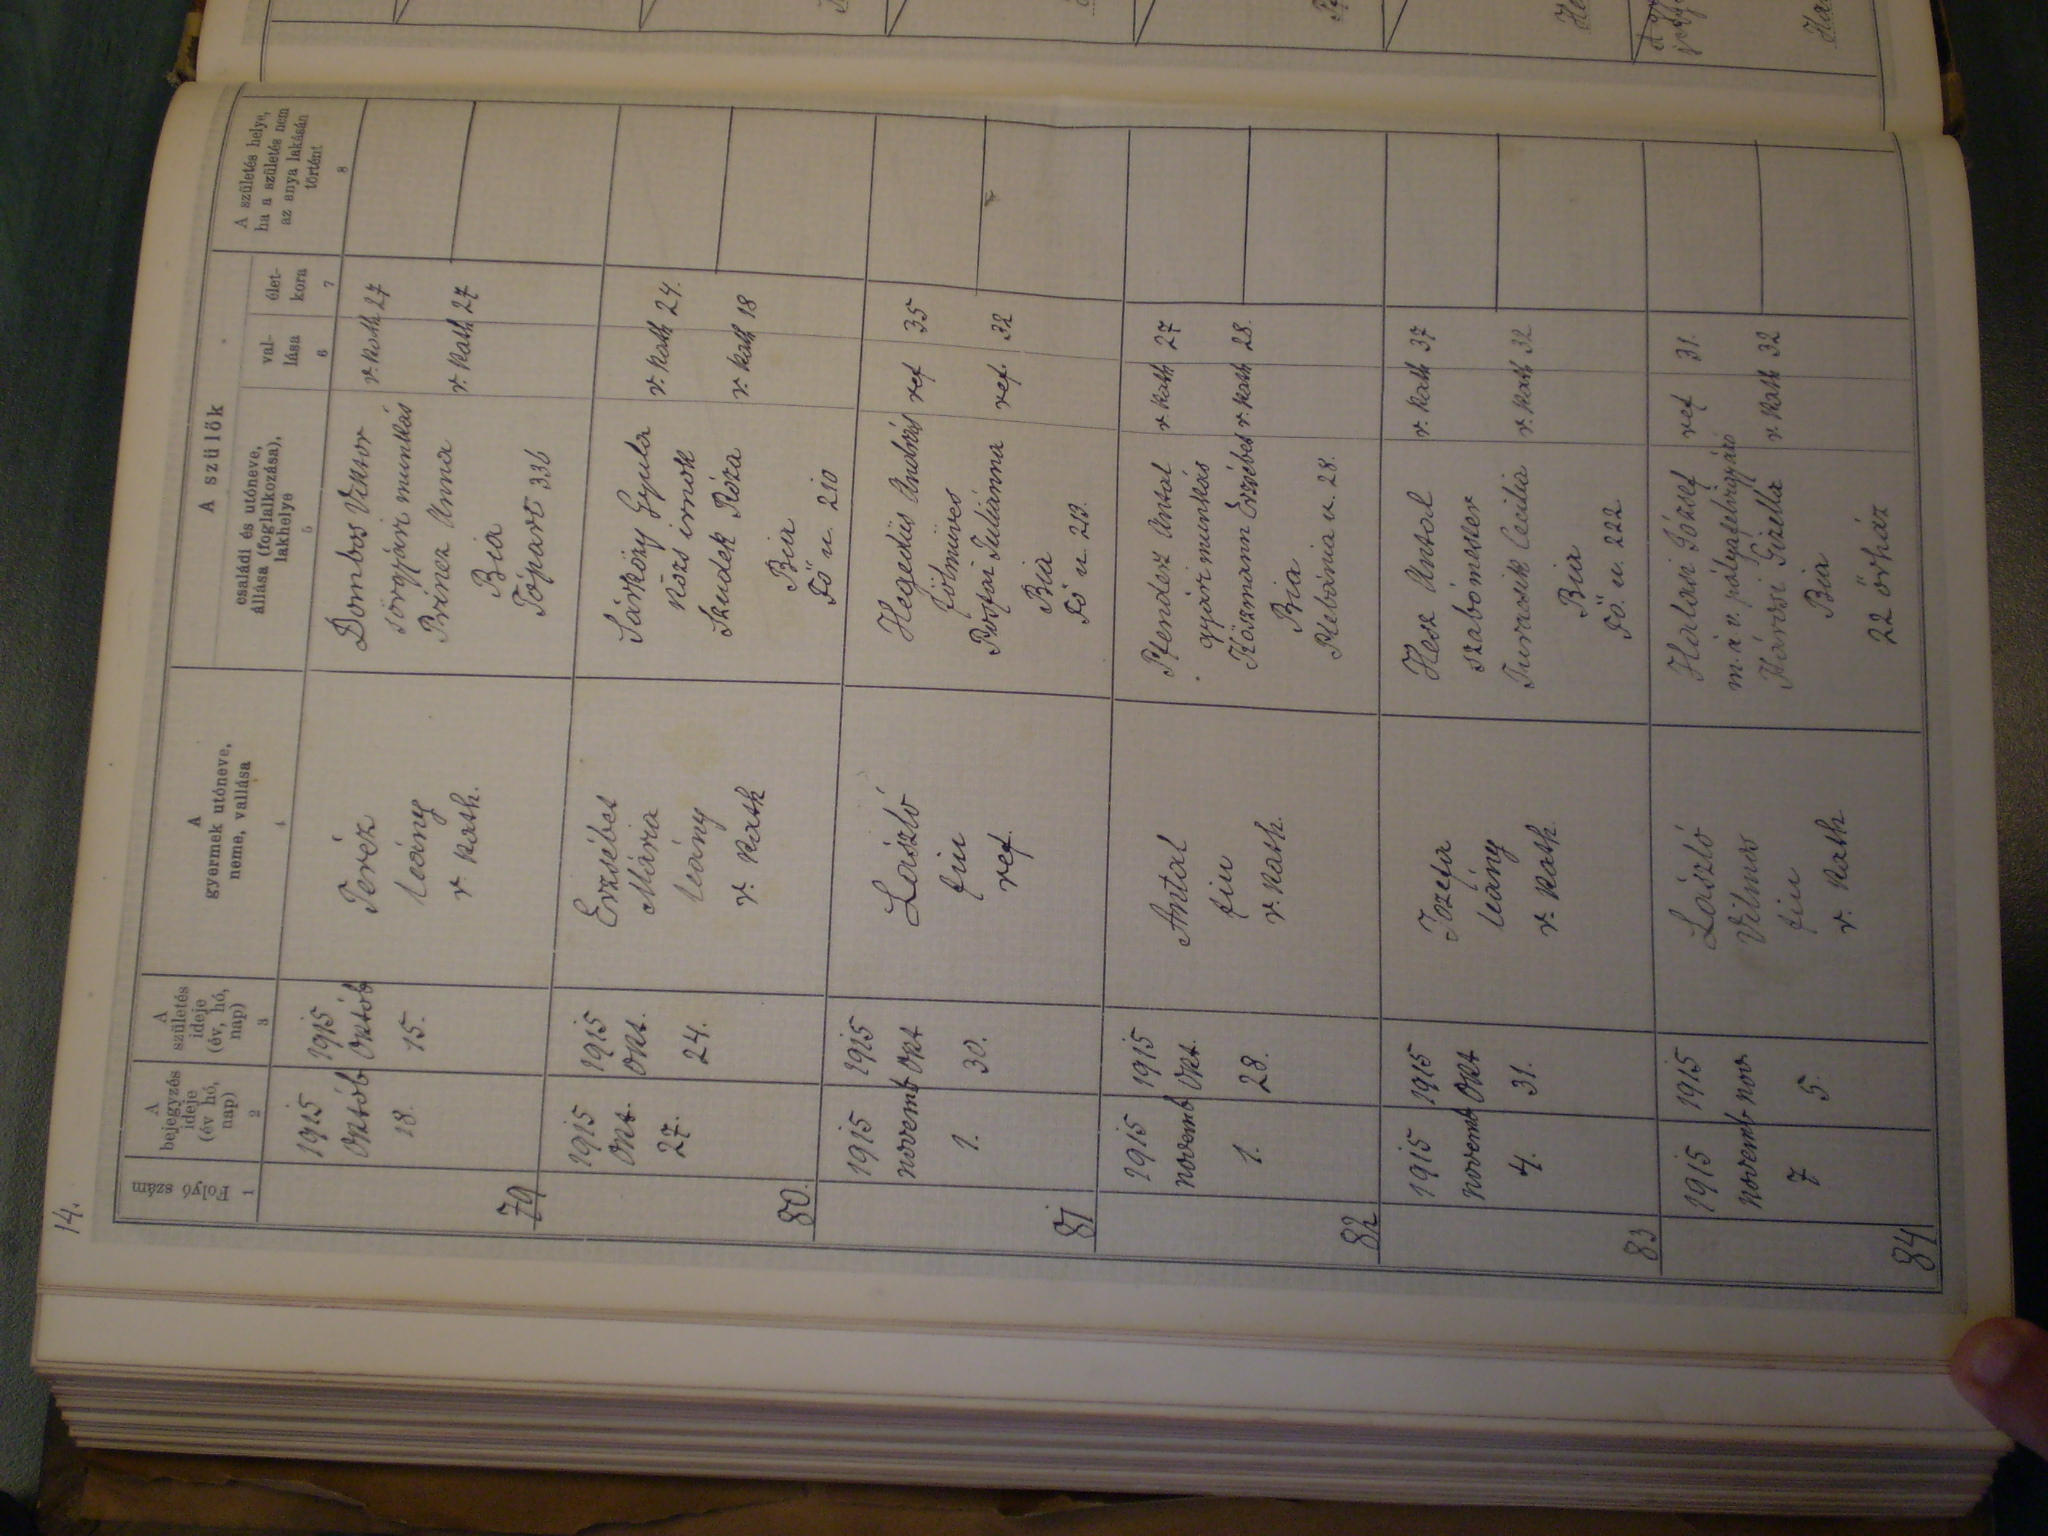 14.
Folyó szám
1
A
bejegyzés
ideje
(év hó,
nap)
2
A
születés
ideje
(év, hó,
nap)
3
A
gyermek utóneve,
neme, vallása
4
A szülők
családi és utóneve,
állása (foglalkozása),
lakhelye
5
val-
lása
6
élet-
kora
7
A születés helye,
ha a születés nem
az anya lakásán
történt
8
79
1915
Októb
18.
1915
Októb
15.
Teréz
leány
r. kath.
Dombos Viktor
sörgyári munkás
r. kath 27
Princz Anna
r. kath 27
Bia
Tópart 336
80.
1915
Okt.
27.
1915
Okt.
24.
Erzsébet
Mária
leány
r. kath
Sárközy Gyula
közs irnok
r. kath 24.
Szudek Róza
r. kath 18
Bia
Fő u. 210
81
1915
novemb
1.
1915
Okt
30.
László
fiu
ref.
Hegedüs András
földmüves
ref 35
Juliánna
ref. 32
Bia
Fő u. 213.
82
1915
novemb
1.
1915
Okt.
28.
Antal
fiu
r. kath.
Pfendesz Antal
gyári munkás
r. kath 27
Erzsébet r. kath 28.
Bia
Plebánia u. 28.
83
1915
novemb
4.
1915
Okt
31.
Jozefa
leány
r. kath.
Hesz Antal
szabómester
r. kath 37
Turcsik Cecilia
r. kath 32
Bia
Fő. u. 222
84
1915
novemb
7
1915
nov
5.
László
Vilmos
fiu
r. kath
József
ref 31.
m. á. v.
Gizella
r. kath 32
Bia
22 őrház